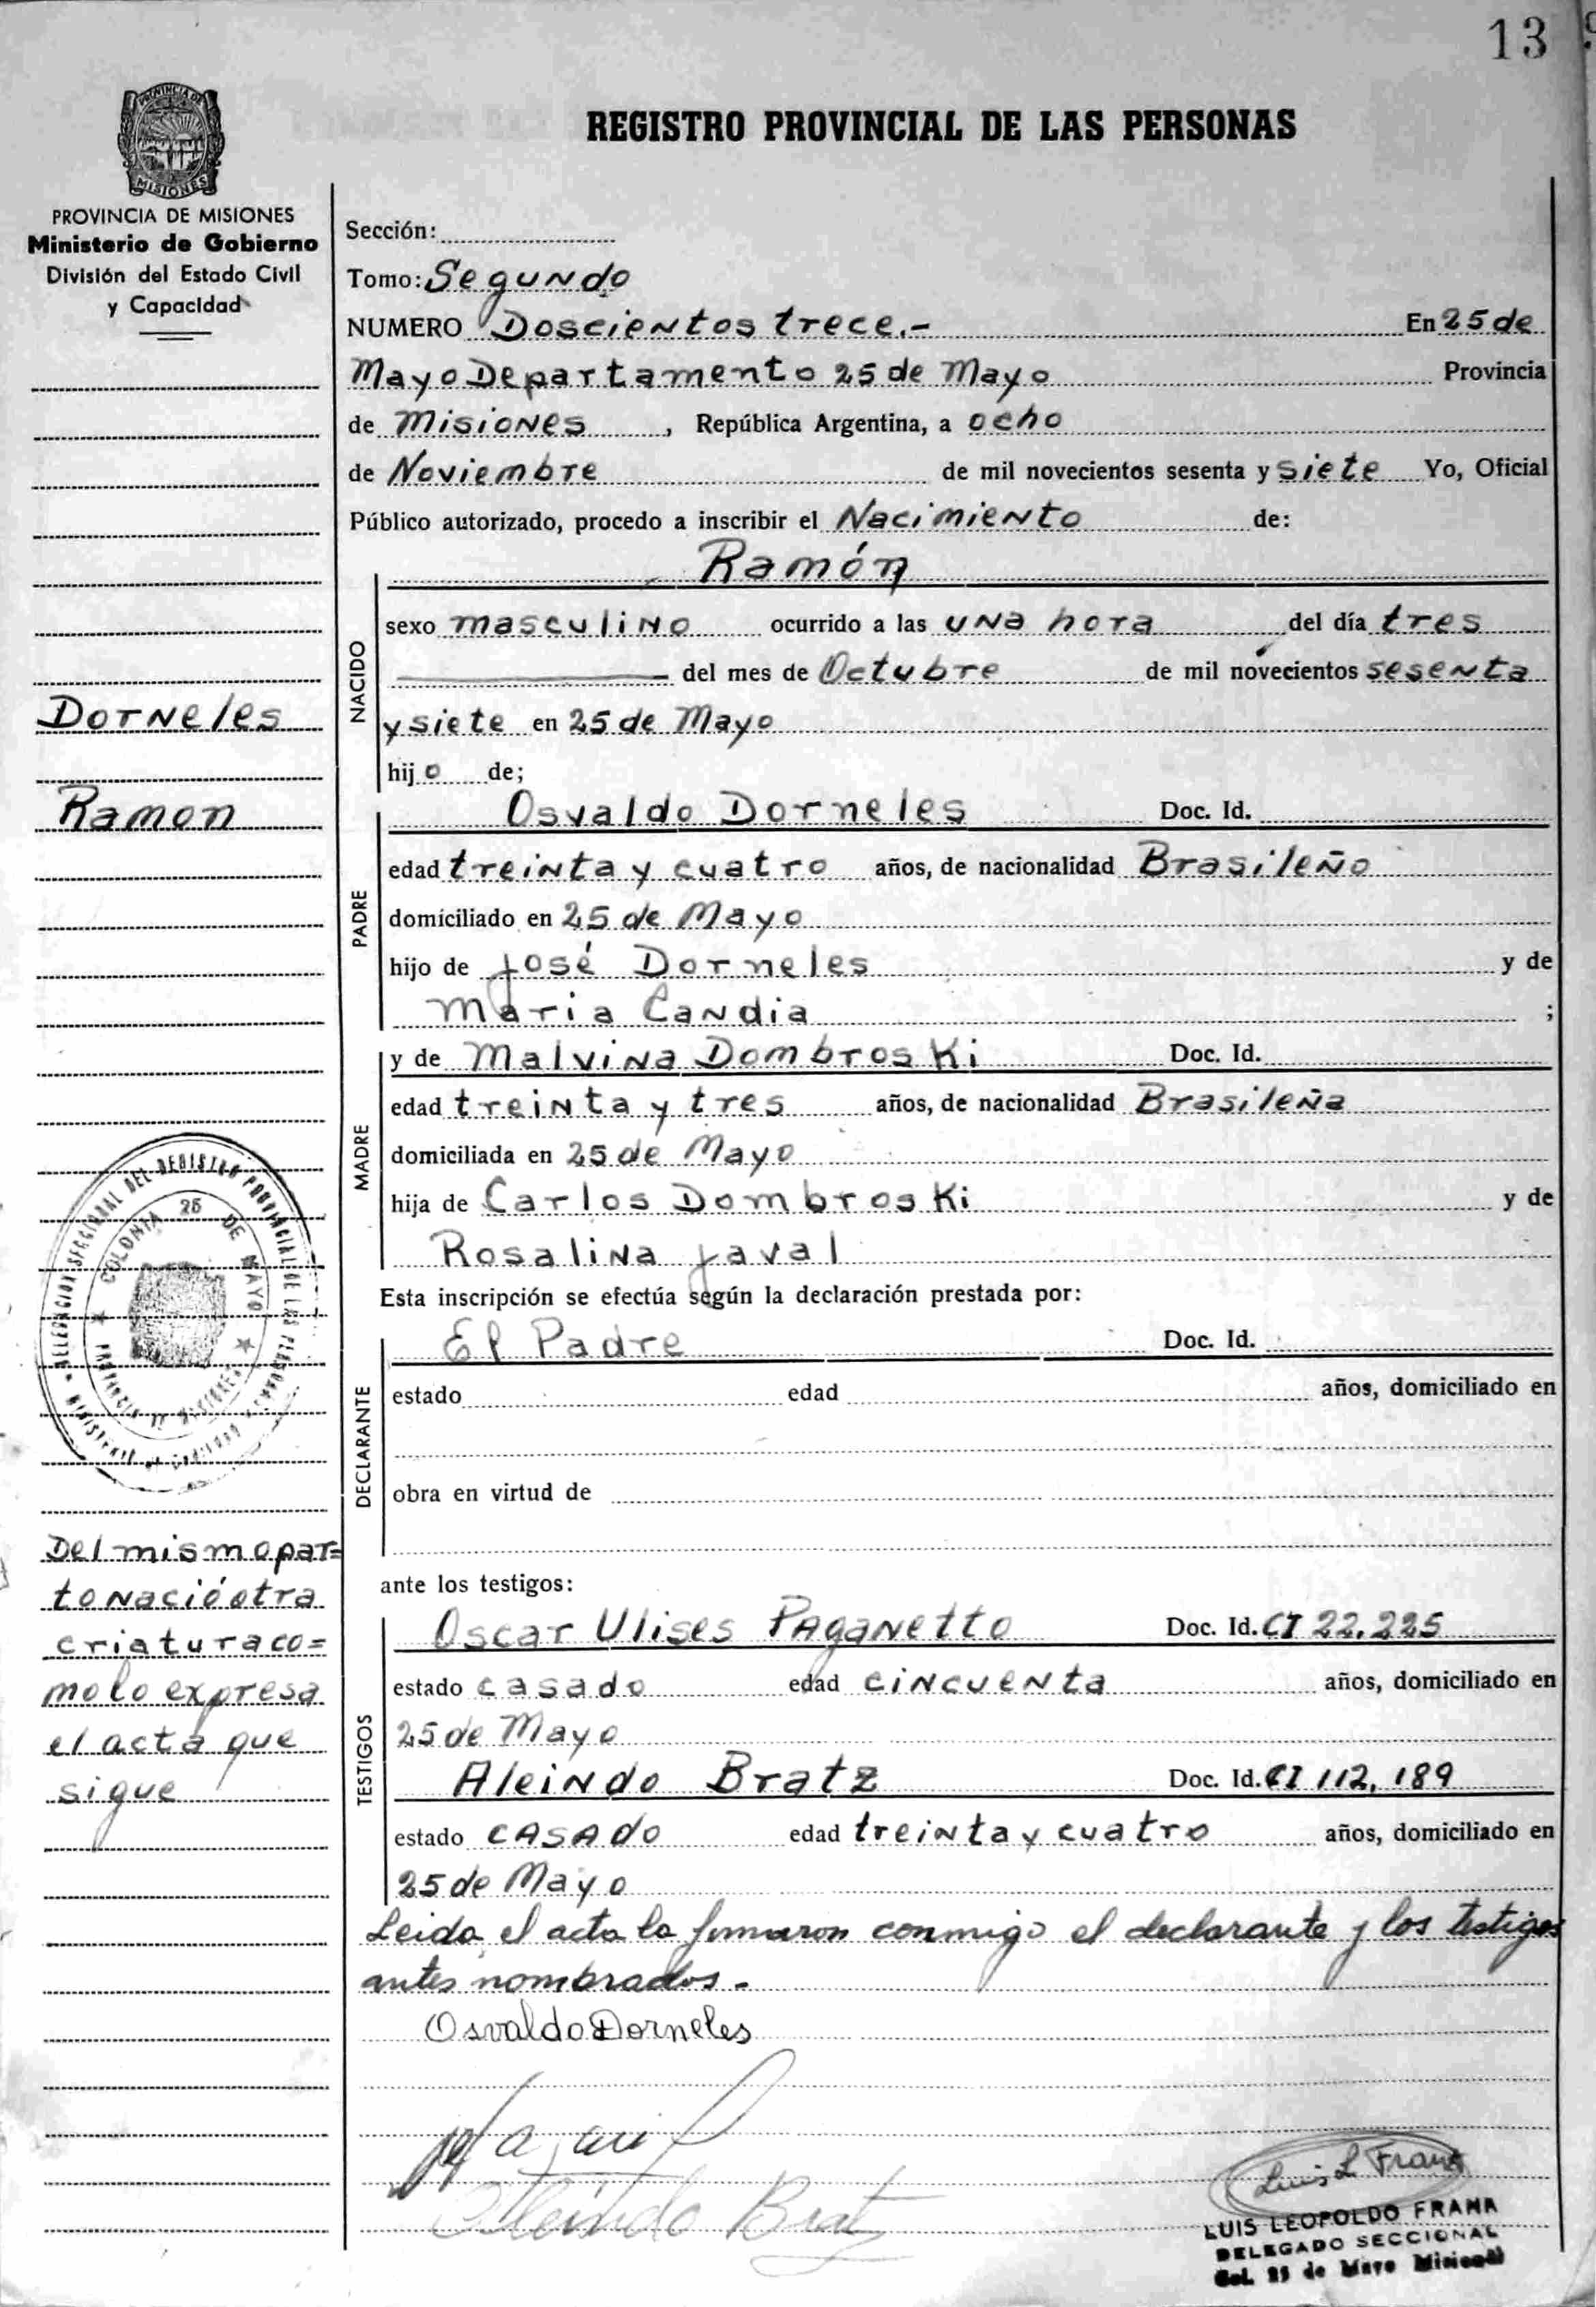 13
REGISTRO PROVINCIAL DE LAS PERSONAS
PROVINCIA DE
MISIONES
PROVINCIA DE MISIONES
Ministerio de Gobierno
División del Estado Civil
y Capacidad
Sección:
Tomo: Segundo
NUMERO Doscientos trece.- En 25 de
Mayo Departamento 25 de Mayo Provincia
de Misiones, República Argentina, a ocho
de Noviembre de mil novecientos sesenta y siete Yo, Oficial
Público autorizado, procedo a inscribir el Nacimiento de:
Ramón
NACIDO
sexo masculino ocurrido a las una hora del día tres
del mes de Octubre de mil novecientos sesenta
y siete en 25 de Mayo
hijo de;
Dorneles
Ramon
Osvaldo Dorneles Doc. Id.
PADRE
edad treinta y cuatro años, de nacionalidad Brasileño
domiciliado en 25 de Mayo
hijo de José Dorneles y de
Maria Candia ;
y de Malvina Dombroski Doc. Id.
MADRE
edad treinta y tres años, de nacionalidad Brasileña
domiciliada en 25 de Mayo
hija de Carlos Dombroski y de
Rosalina Javal
Esta inscripción se efectúa según la declaración prestada por:
El Padre Doc. Id.
DECLARANTE
estado edad años, domiciliado en
obra en virtud de
DELEGACION SECCIONAL DEL REGISTRO PROVINCIAL DE LAS PERSONAS
COLONIA 25 DE MAYO
PROVINCIA DE MISIONES
Del mismo par=
to nació otra
criatura co=
mo lo expresa
el acta que
sigue
ante los testigos:
TESTIGOS
Oscar Ulises Paganetto Doc. Id. CI 22.225
estado casado edad cincuenta años, domiciliado en
25 de Mayo
Aleindo Bratz Doc. Id. CI 112,189
estado casado edad treinta y cuatro años, domiciliado en
25 de Mayo
Leida el acta la firmaron conmigo el declarante y los testigos
antes nombrados.-
Osvaldo Dorneles
Aleindo Bratz
Luis L Frana
LUIS LEOPOLDO FRANA
DELEGADO SECCIONAL
Col. 25 de Mayo Misiones